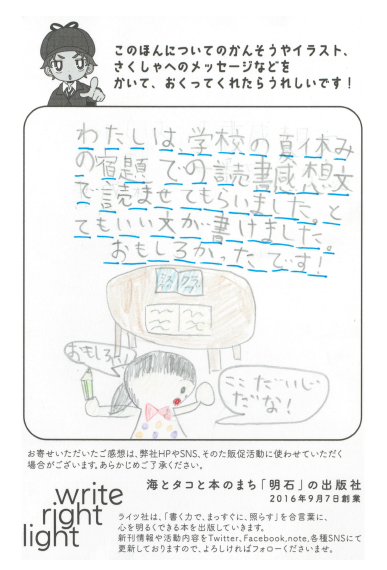 このほんについてのかんそうやイラスト、
さくしゃへのメッセージなどを
かいて、おくってくれたらうれしいです！
わたしは、学校の夏休み
の宿題での読書感想文
で読ませてもらいました。と
てもいい文が書けました。
おもしろかったです！
おもしろい
ここだいじ
だな！
お寄せいただいたご感想は、弊社HPやSNS、そのた販促活動に使わせていただく
場合がございます。あらかじめご了承ください。
write
right
light
海とタコと本のまち「明石」の出版社
2016年9月7日創業
ライツ社は、「書く力で、まっすぐに、照らす」を合言葉に、
心を明るくできる本を出版していきます。
新刊情報や活動内容をTwitter、Facebook、note、各種SNSにて
更新しておりますので、よろしければフォローくださいませ。